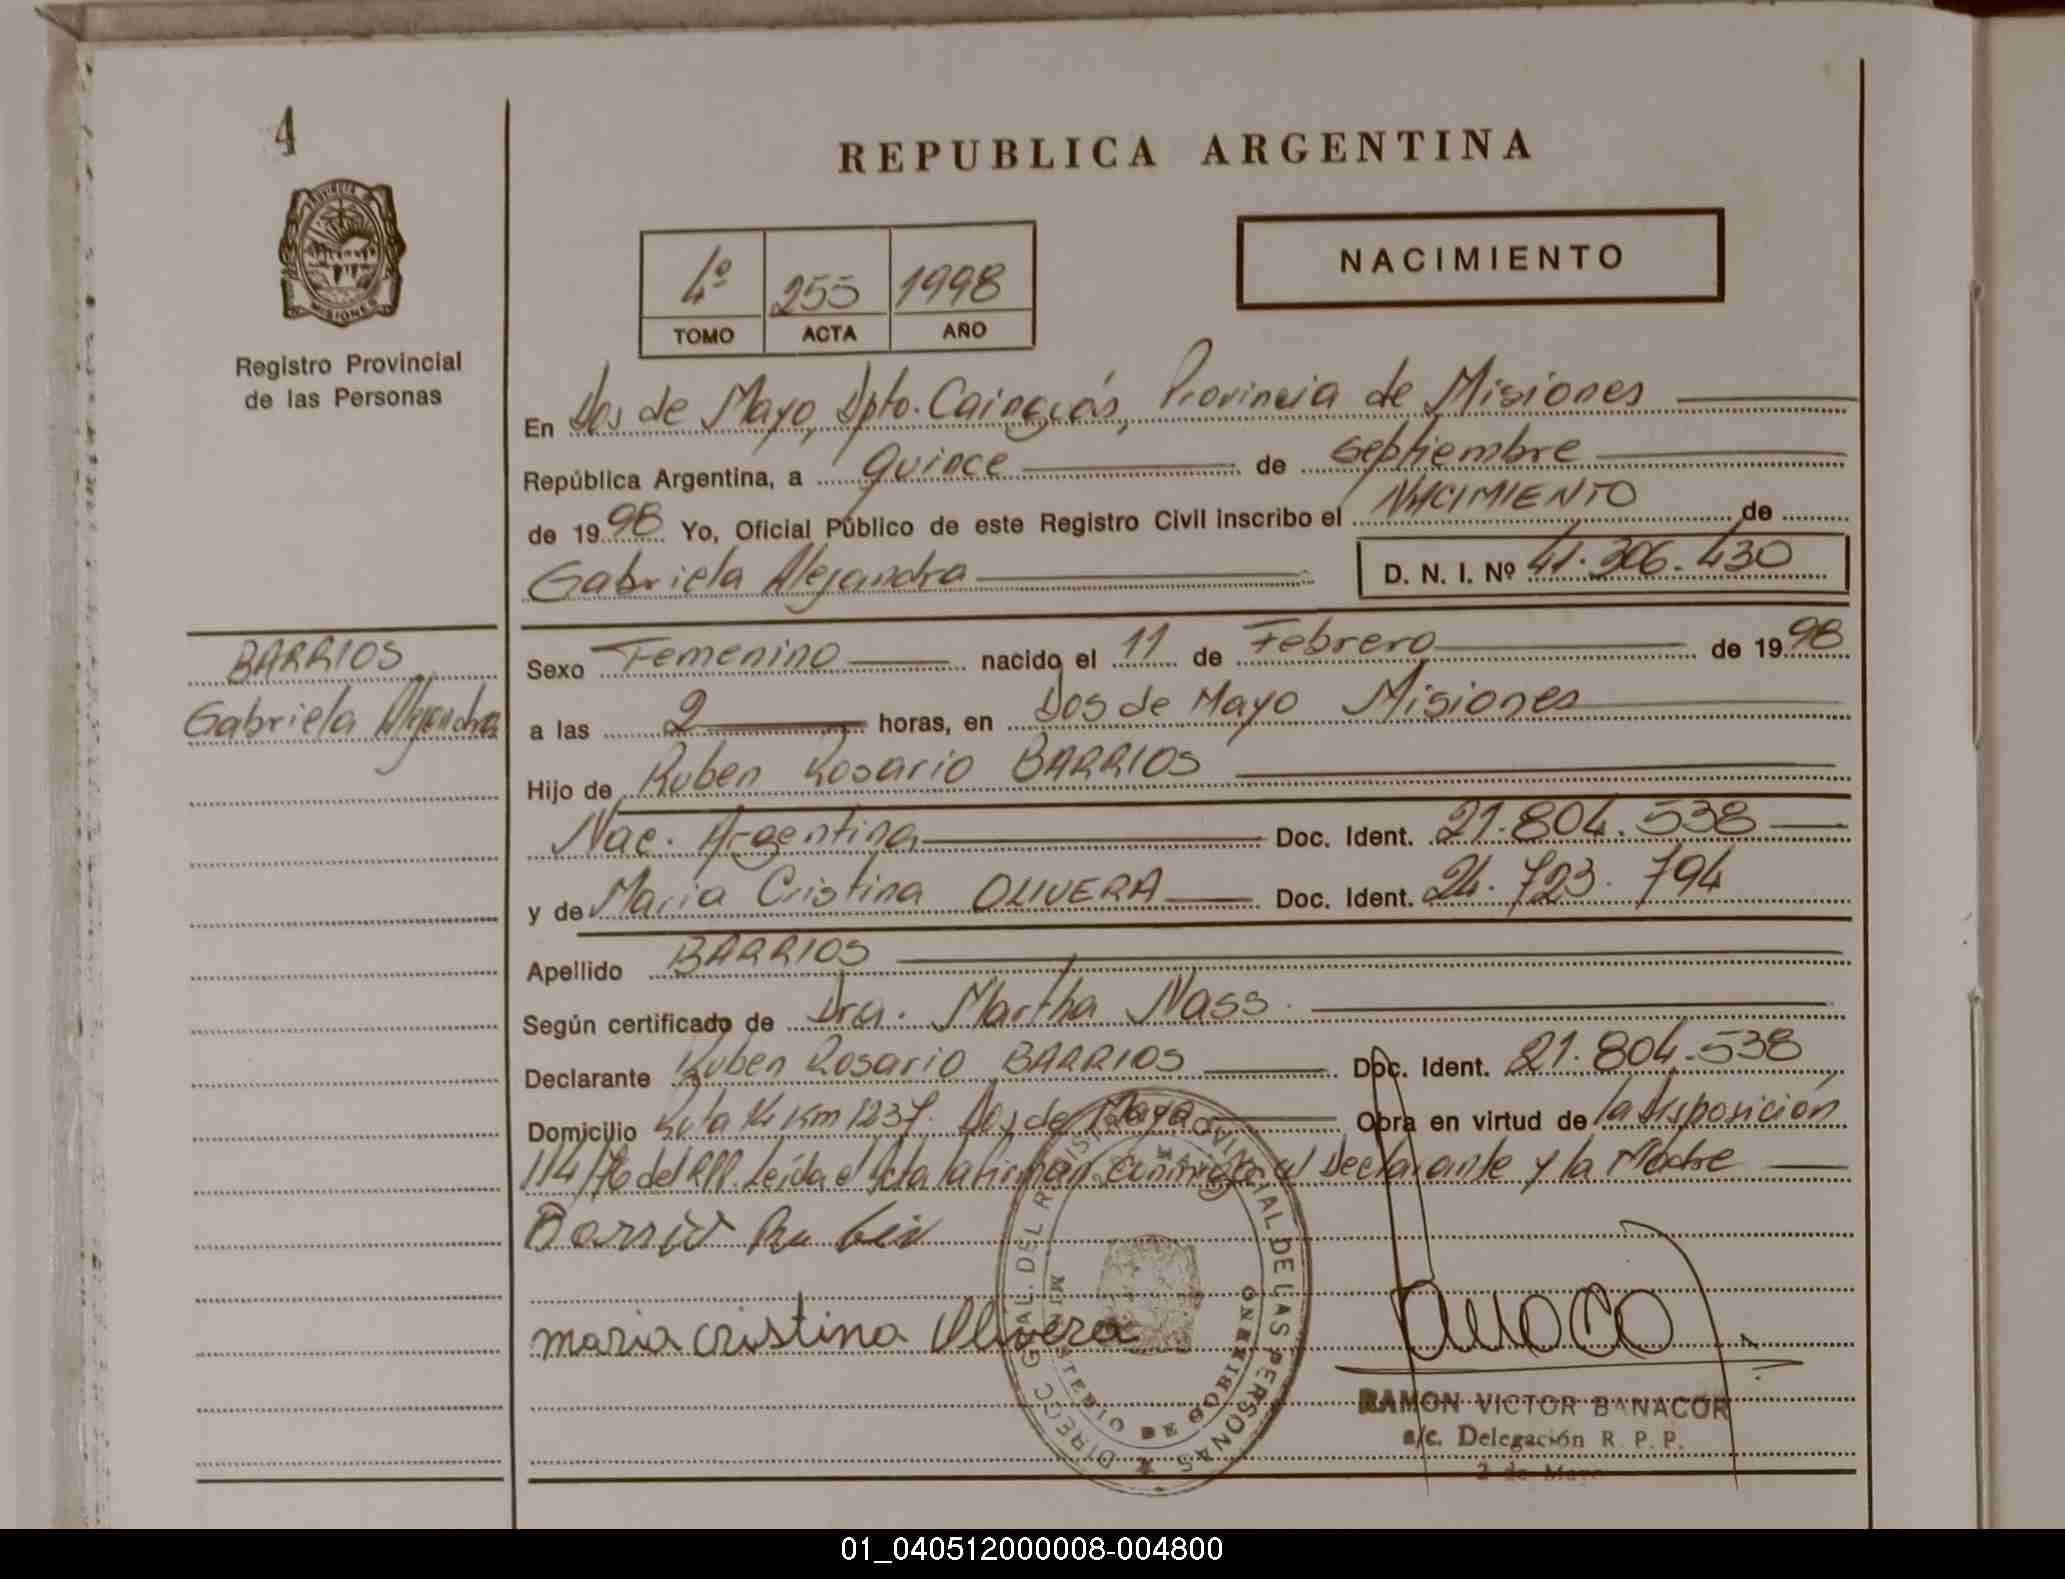 4
REPUBLICA ARGENTINA
NACIMIENTO
4º 255 1998
TOMO ACTA AÑO
MISIONES
Registro Provincial
de las Personas
En Dos de Mayo, Dpto. Cainguás, Provincia de Misiones
República Argentina, a quince de septiembre
de 1998 Yo, Oficial Público de este Registro Civil inscribo el NACIMIENTO de
Gabriela Alejandra D. N. I. Nº 41.306.430
BARRIOS
Gabriela Alejandra
Sexo Femenino nacido el 11 de Febrero de 1998
a las 2 horas, en Dos de Mayo Misiones
Hijo de Ruben Rosario BARRIOS
Nac. Argentina Doc. Ident. 21.804.538
y de Maria Cristina OLIVERA Doc. Ident. 24.723.794
Apellido BARRIOS
Según certificado de Dra. Martha Nass.
Declarante Ruben Rosario BARRIOS Doc. Ident. 21.804.538
Domicilio Ruta 14 Km 1237. Dos de Mayo Obra en virtud de la disposición
114/76 del RPP. Leída el Acta la firman conmigo el Declarante y la Madre
Barrio Ruben
maria cristina Olivera
DIRECC GRAL. DEL REGISTRO PROVINCIAL DE LAS PERSONAS
MINISTERIO DE GOBIERNO
RAMON VICTOR BANACOR
a/c. Delegación R. P. P.
2 de Mayo
01_040512000008-004800